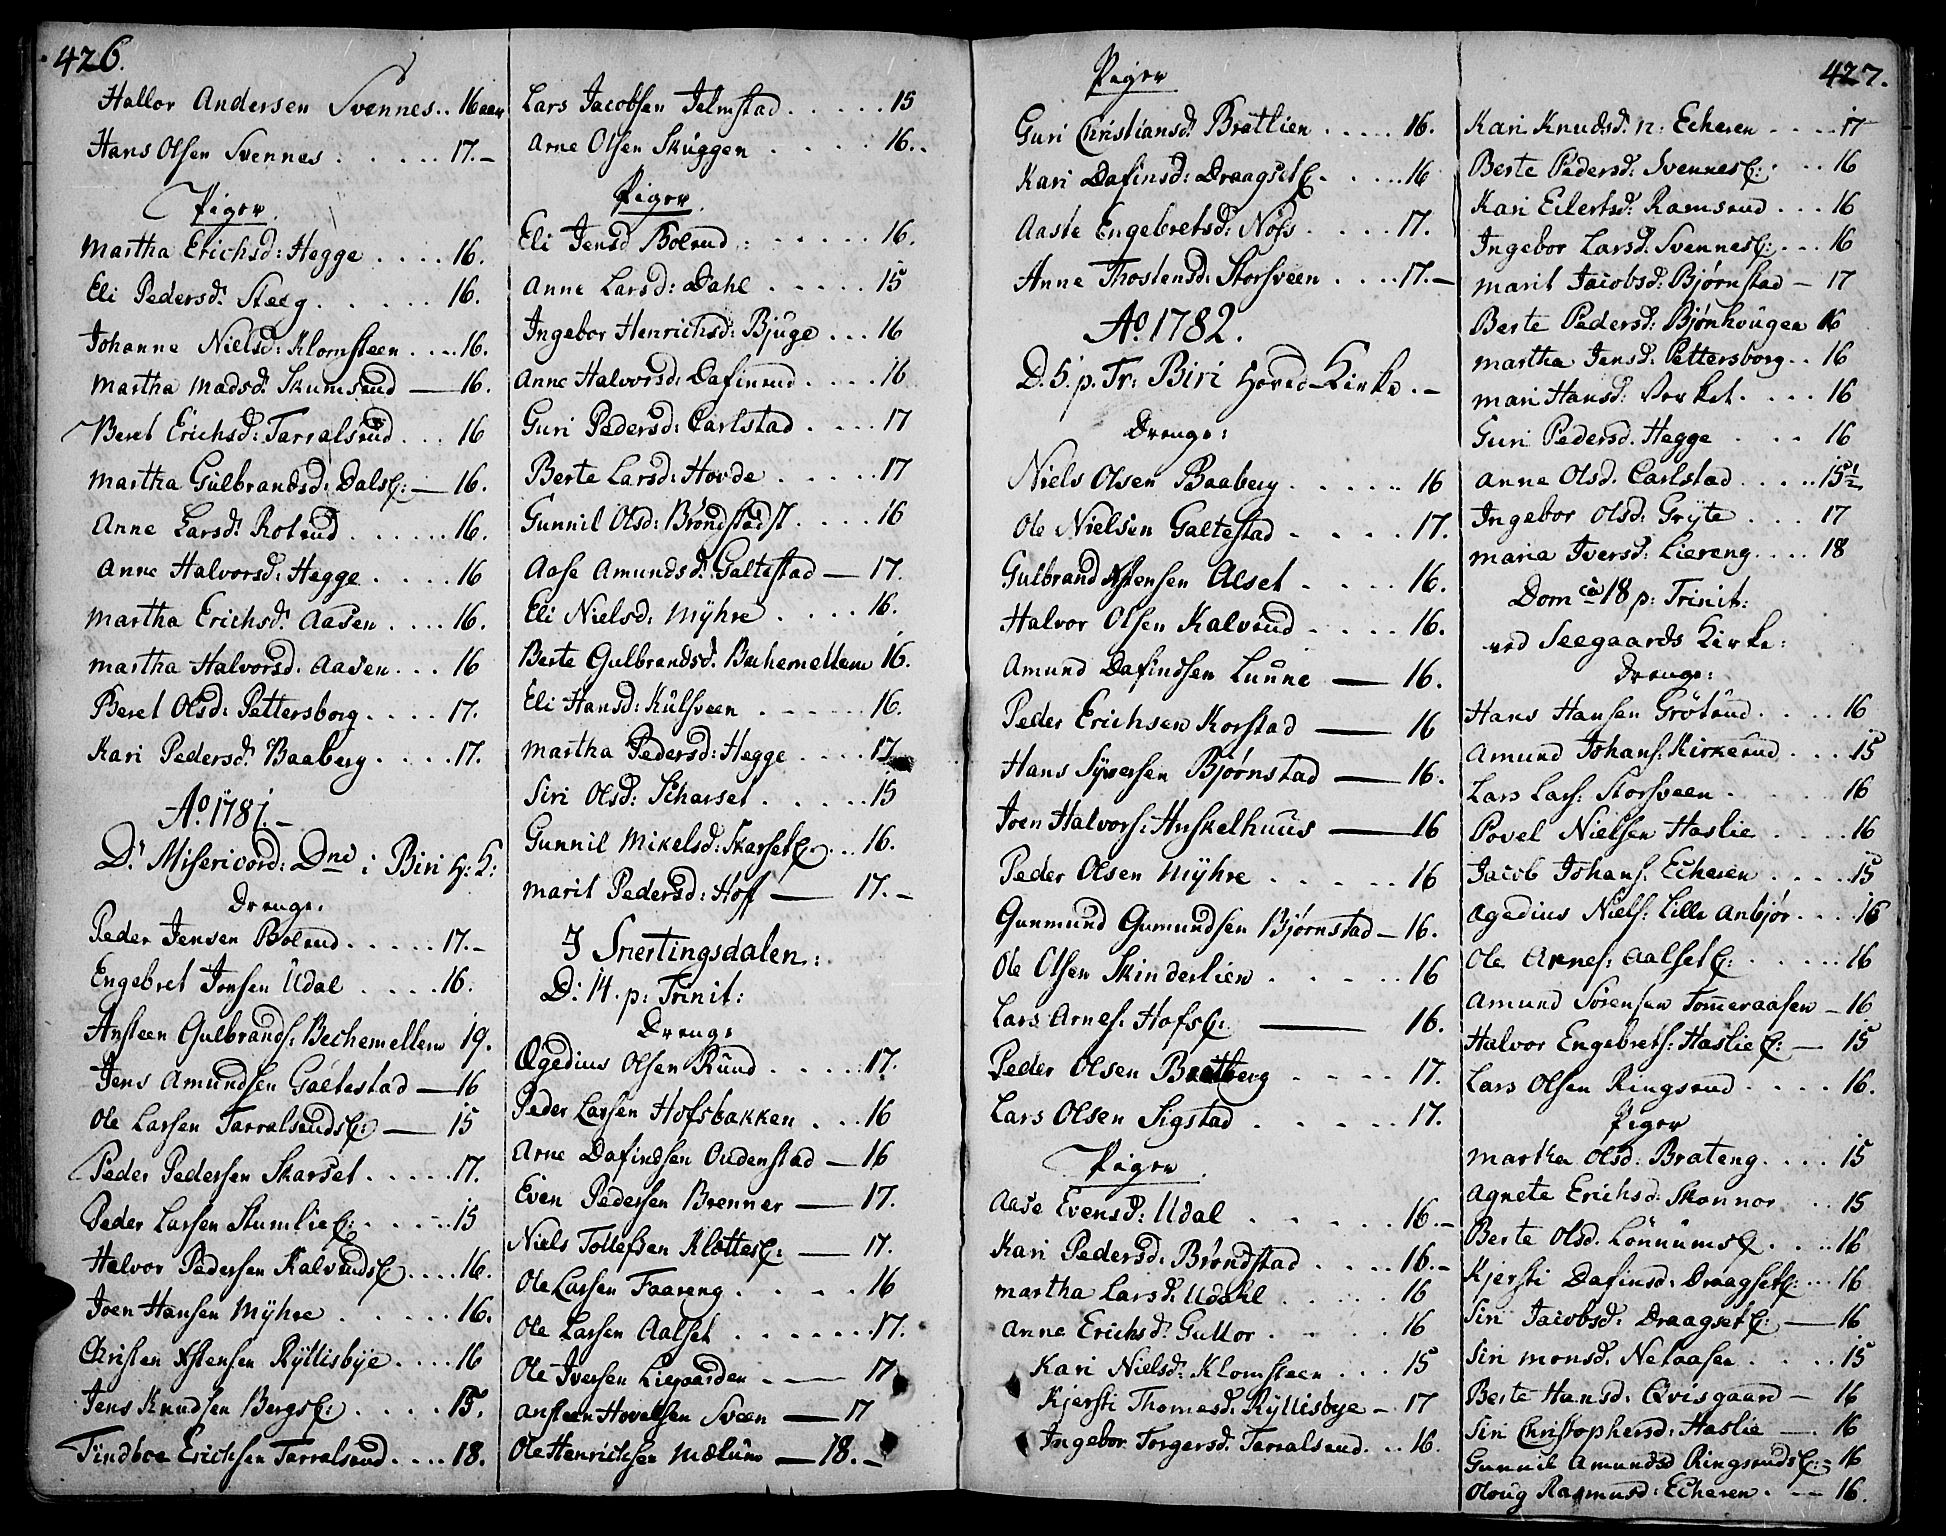 426.
Hallor Andersen Svennes . . 16 aar
Hans Olsen Svennes . . . . . . 17. –
Piger
Martha Erichsd: Hegge . . . . 16.
Eli Pedersd: Steeg . . . . . . 16.
Johanne Nielsd: Klomsteen . . . . 16.
Martha Madsd: Skumsrud — 16.
Beret Erichsd: Tarralsrud . . . 16
Martha Gulbrandsd: Dalsℓ: — 16.
Anne Larsd: Rotrud . . . . . . 16.
Anne Halvorsd: Hegge . . . . . 16
Martha Erichsd: Aasen . . . . 16.
Martha Halvorsd: Aasen . . . 16
Beret Olsd: Pettersborg . . . . 17.
Kari Pedersd: Baaberg . . . . . 17.
Ao. 1781. –
D: Misericord: Dni i Biri H: K:
Drenge:
Peder Jensen Bolrud . . . . . 17. –
Engebret Jonsen Udal . . . . 16.
Ansteen Gulbrands: Bechemellem 19.
Jens Amundsen Galtestad — 16
Ole Larsen Tarralsrudsℓ: — 15
Peder Pedersen Skarset . . . . . 17.
Peder Larsen Stumlieℓ: . . . . . 15
Halvor Pedersen Kalvrudsℓ . . . . 16.
Joen Hansen Mÿhre . . . . . . 16.
Christen Ostensen Ryllisbye . . . . 16
Jens Knudsen Bergsℓ: . . . . . 15.
Tindboe Erichsen Tarralsrud . . . . 18.
Lars Jacobsen Jelmstad . . . . . 15
Arne Olsen Skuggen . . . . . 16. .
Piger
Eli Jensd Bolrud : . . . . . . 16.
Anne Larsd: Dahl . . . . . 15
Ingebor Henrichsd: Bjuge . . . 16
Anne Halvorsd: Dafinrud . . . . 16
Guri Pedersd: Carlstad . . . . 17
Berte Larsd: Hovde . . . . . 17
Gunnil Olsd: Brøndstadst . . . . 16
Aase Amundsd: Galtestad — 17.
Eli Nielsd: Mÿhre . . . . . 16.
Berte Gulbrandsd: Bechemellem 16.
Eli Hansd: Kulsveen . . . . . 16.
Martha Pedersd: Hegge . . . . 17
Siri Olsd: Scharset . . . . . . 15
Gunnil Mikelsd: Skarsetℓ . . . 16.
Marit Pedersd: Hoff — 17. –
I Snertingsdalen:
D: 14. p: Trinit:
Drenge
Egedius Olsen Rund . . . . . 17.
Peder Larsen Hofsbakken . . . 16
Arne Dafindsen Oudenstad — 16
Even Pedersen Brenner — 17.
Niels Tollefsen Klættesℓ: — 17.
Ole Larsen Faareng . . . . . 16
Ole Larsen Aalset . . . . . . . 17.
Ole Iversen Liegaarden — 17
Ansteen Hovelsen Sveen — 17
Ole Henrichsen Mælum — 18. –
Piger
Guri Christiansd: Bratlien . . . . . 16.
Kari Dafinsd: Draagsetℓ . . . . . 16
Aaste Engebretsd: Nøss . . . . 17.
Anne Thostensd: Storsveen . . . . 17. –
Ao. 1782.
D. 5. p. Tr: Biri Hoved-Kirke. –
Drenge:
Niels Olsen Baaberg . . . . . . 16
Ole Nielsen Galtestad . . . . 17.
Gulbrand Ostensen Alset . . . . 16.
Halvor Olsen Kalvrud . . . . . 16.
Amund Dafindsen Lunne — 16.
Peder Erichsen Korstad — 16
Hans Syversen Bjørnstad — 16.
Joen Halvors: Huskelhuus — 16
Peder Olsen Mÿhre . . . . . 16
Gunmund Gumundsen Bjørnstad – 16.
Ole Olsen Skinderlien . . . . . 16
Lars Arnes: Hofsℓ: — 16.
Peder Olsen Bratberg . . . . 17.
Lars Olsen Sigstad . . . . . . 17.
Piger
Aase Evensd: Udal . . . . . . 16. –
Kari Pedersd: Brøndstad . . . . 16. –
Martha Larsd: Udahl . . . . . 16
Anne Erichsd: Gullor . . . . . 16
Kari Nielsd: Klomsteen . . . 15
Kjersti Thomasd: Ryllisbye – 17
Ingebor Torgersd: Tarralsrud . . . 16.
427.
Kari Knudsd: n: Echeren . . . . . 17
Berte Pedersd: Svennesℓ: . . . 16
Kari Eilertsd: Ramsrud . . . 16
Ingebor Larsd: Svennesℓ: . . . 16
Marit Jacobsd: Bjørnstad – 17
Berte Pedersd: Bjønhougen 16
Martha Jensd: Pettersborg . . 16
Mari Hansd: Sørket . . . . 16
Guri Pedersd. Hegge . . . 16
Anne Olsd. Carlstad . . . . . 15½
Ingebor Olsd: Gryte . . . 17
Maria Iversd: Liereng . . . . 18
Domca 18 p: Trinit:
ved Seegaards Kirke:
Drenge:
Hans Hansen Grötrud . . . . 16
Amund Johans: Kirkerud . . . 15
Lars Lars: Storsveen . . . . . 16
Povel Nielsen Haslie . . . . 16
Jacob Johans: Echeren . . . . 15
Agedius Niels: Lille Anbjør . . . 16
Ole Arnes: Aalsetℓ: . . . . . 16
Amund Sörensen Tomeraasen – 16
Halvor Engebrets: Haslieℓ: – 15
Lars Olsen Ringsrud . . . . 16.
Piger
Martha Olsd: Brateng . . . . 15
Agnete Erichsd: Skonnor . . 15
Berte Olsd. Lönnumsℓ . . . . 16
Kjersti Dafinsd: Draagsetℓ: . . . 16
Siri Jacobsd: Draagsetℓ: — 16
Siri Monsd: Netaasen . . . . 15
Berte Hansd: Qvisgaard – 16
Siri Christophersd: Haslie — 16
Gunnil Amundsd Ringsrudsℓ: – 16
Oloug Rasmusd: Echeren . – – 16.